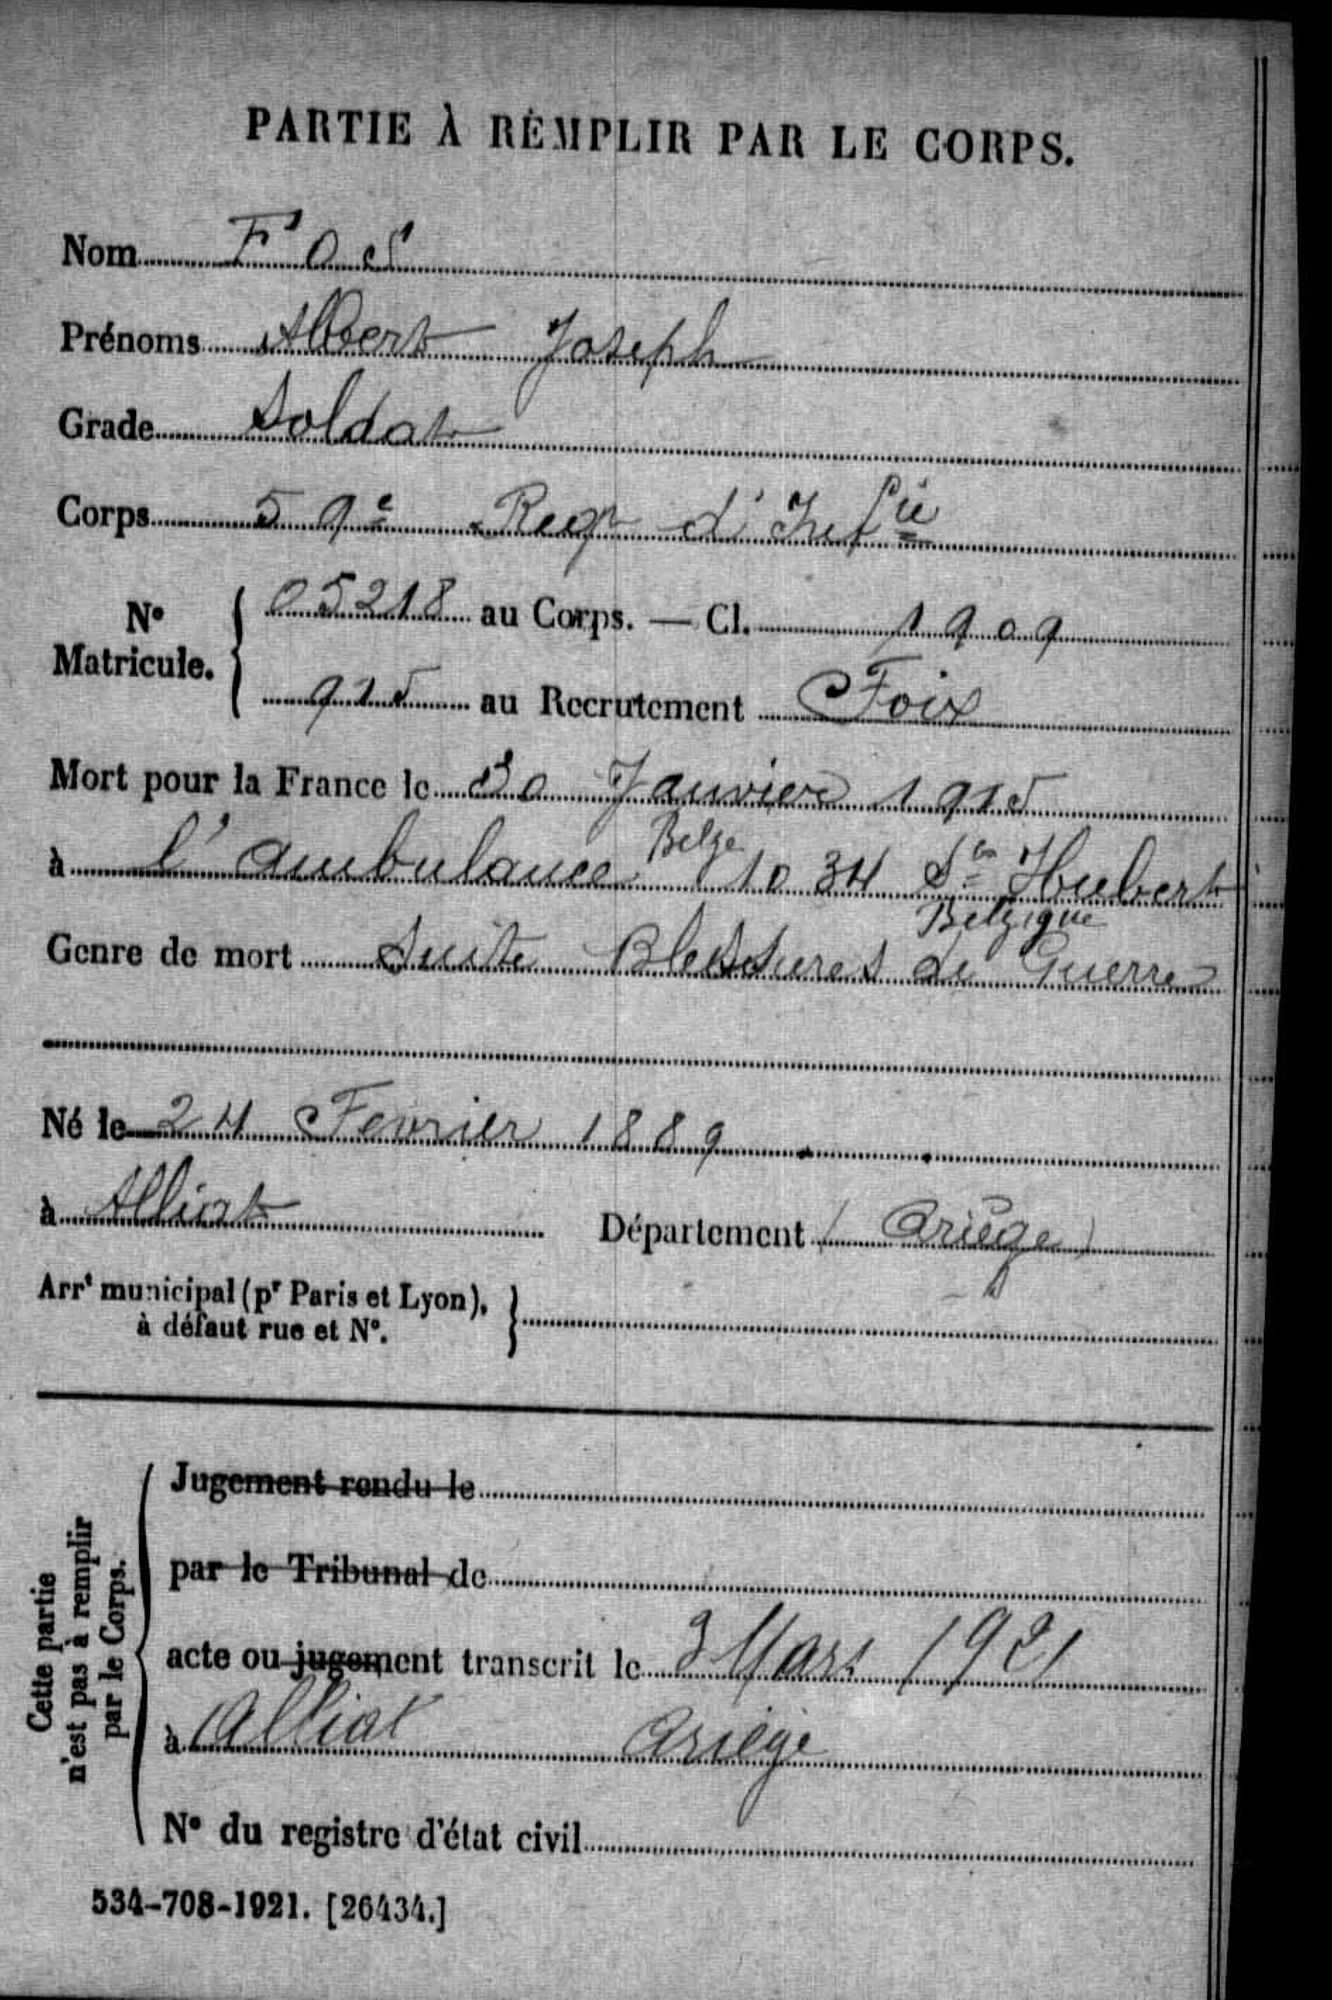 PARTIE À REMPLIR PAR LE CORPS.
Nom Fos
Prénoms Albert Joseph
Grade Soldat
Corps 59e Regt d'Infie
No Matricule. 05218 au Corps. — Cl. 1909
915 au Recrutement Foix
Mort pour la France le 30 Janvier 1915
à l'ambulance Belge 1034 St Hubert
Belgique
Genre de mort Suite Blessures de Guerre
Né le 24 Fevrier 1889
à Alliat Département (Ariège)
Arrt municipal (pr Paris et Lyon),
à défaut rue et No.
Cette partie
n'est pas à remplir
par le Corps.
Jugement rendu le
par le Tribunal de
acte ou jugement transcrit le 3 Mars 1921
à Alliat Ariège
No du registre d'état civil
534-708-1921. [26434.]